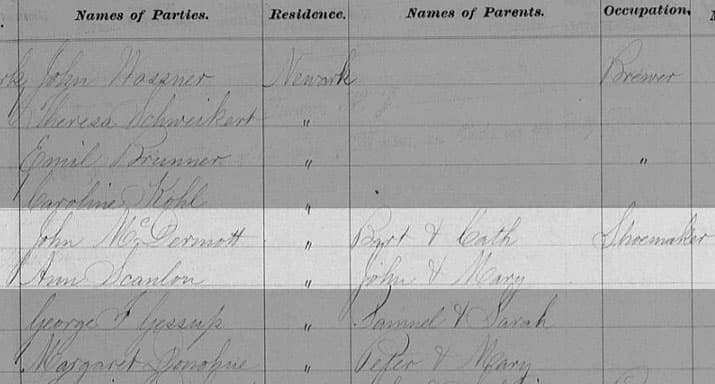 Names of Parties. Residence. Names of Parents. Occupation.
John Wassner Newark Brewer
Theresa Schweikert "
Emil Brunner " "
Caroline Kohl "
John McDermott " Bart & Cath Shoemaker
Ann Scanlon " John & Mary
George F Jessup " Samuel & Sarah
Margaret Donohue " Peter & Mary